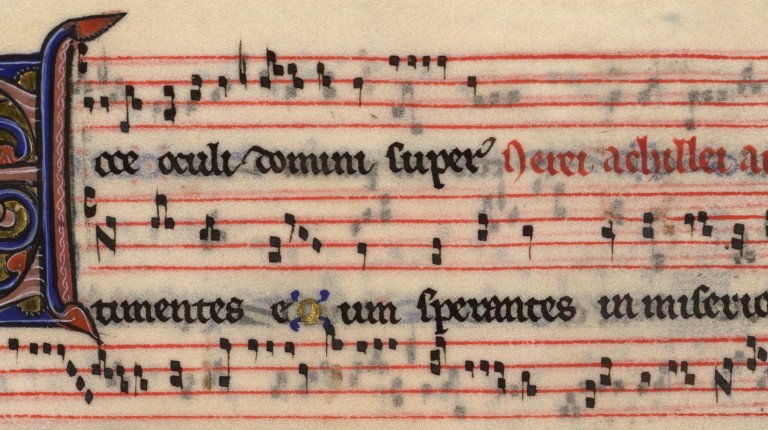 Ecce oculi domini super Nerei achillei
timentes eum sperantes in miseric